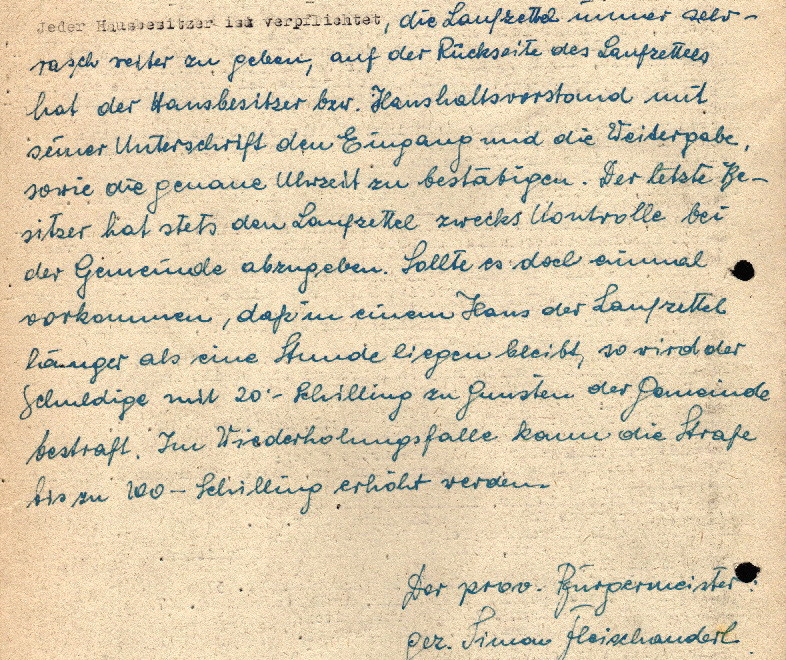 Jeder Hausbesitzer ist verpflichtet, die Laufzettel immer sehr
rasch weiter zu geben, auf der Rückseite des Laufzettels
hat der Hausbesitzer bzw. Haushaltsvorstand mit
seiner Unterschrift den Eingang und die Weitergabe,
sowie die genaue Uhrzeit zu bestätigen. Der letzte Be-
sitzer hat stets den Laufzettel zwecks Kontrolle bei
der Gemeinde abzugeben. Sollte es doch einmal
vorkommen, daß in einem Haus der Laufzettel
länger als eine Stunde liegen bleibt, so wird der
Schuldige mit 20.- Schilling zu Gunsten der Gemeinde
bestraft. Im Wiederholungsfalle kann die Strafe
bis zu 100 - Schilling erhöht werden.
Der prov. Bürgermeister:
gez. Simon Fleischanderl